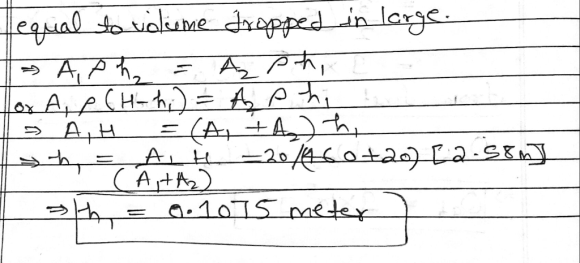 equal to volume dropped in large.
⇒ A₁ ρ h₂ = A₂ ρ h₁
or A₁ ρ (H-h₁) = A₂ ρ h₁
⇒ A₁ H = (A₁ + A₂) h₁
⇒ h₁ = A₁ H / (A₁+A₂) = 20/(460+20) [2.58m]
⇒ h₁ = 0.1075 meter